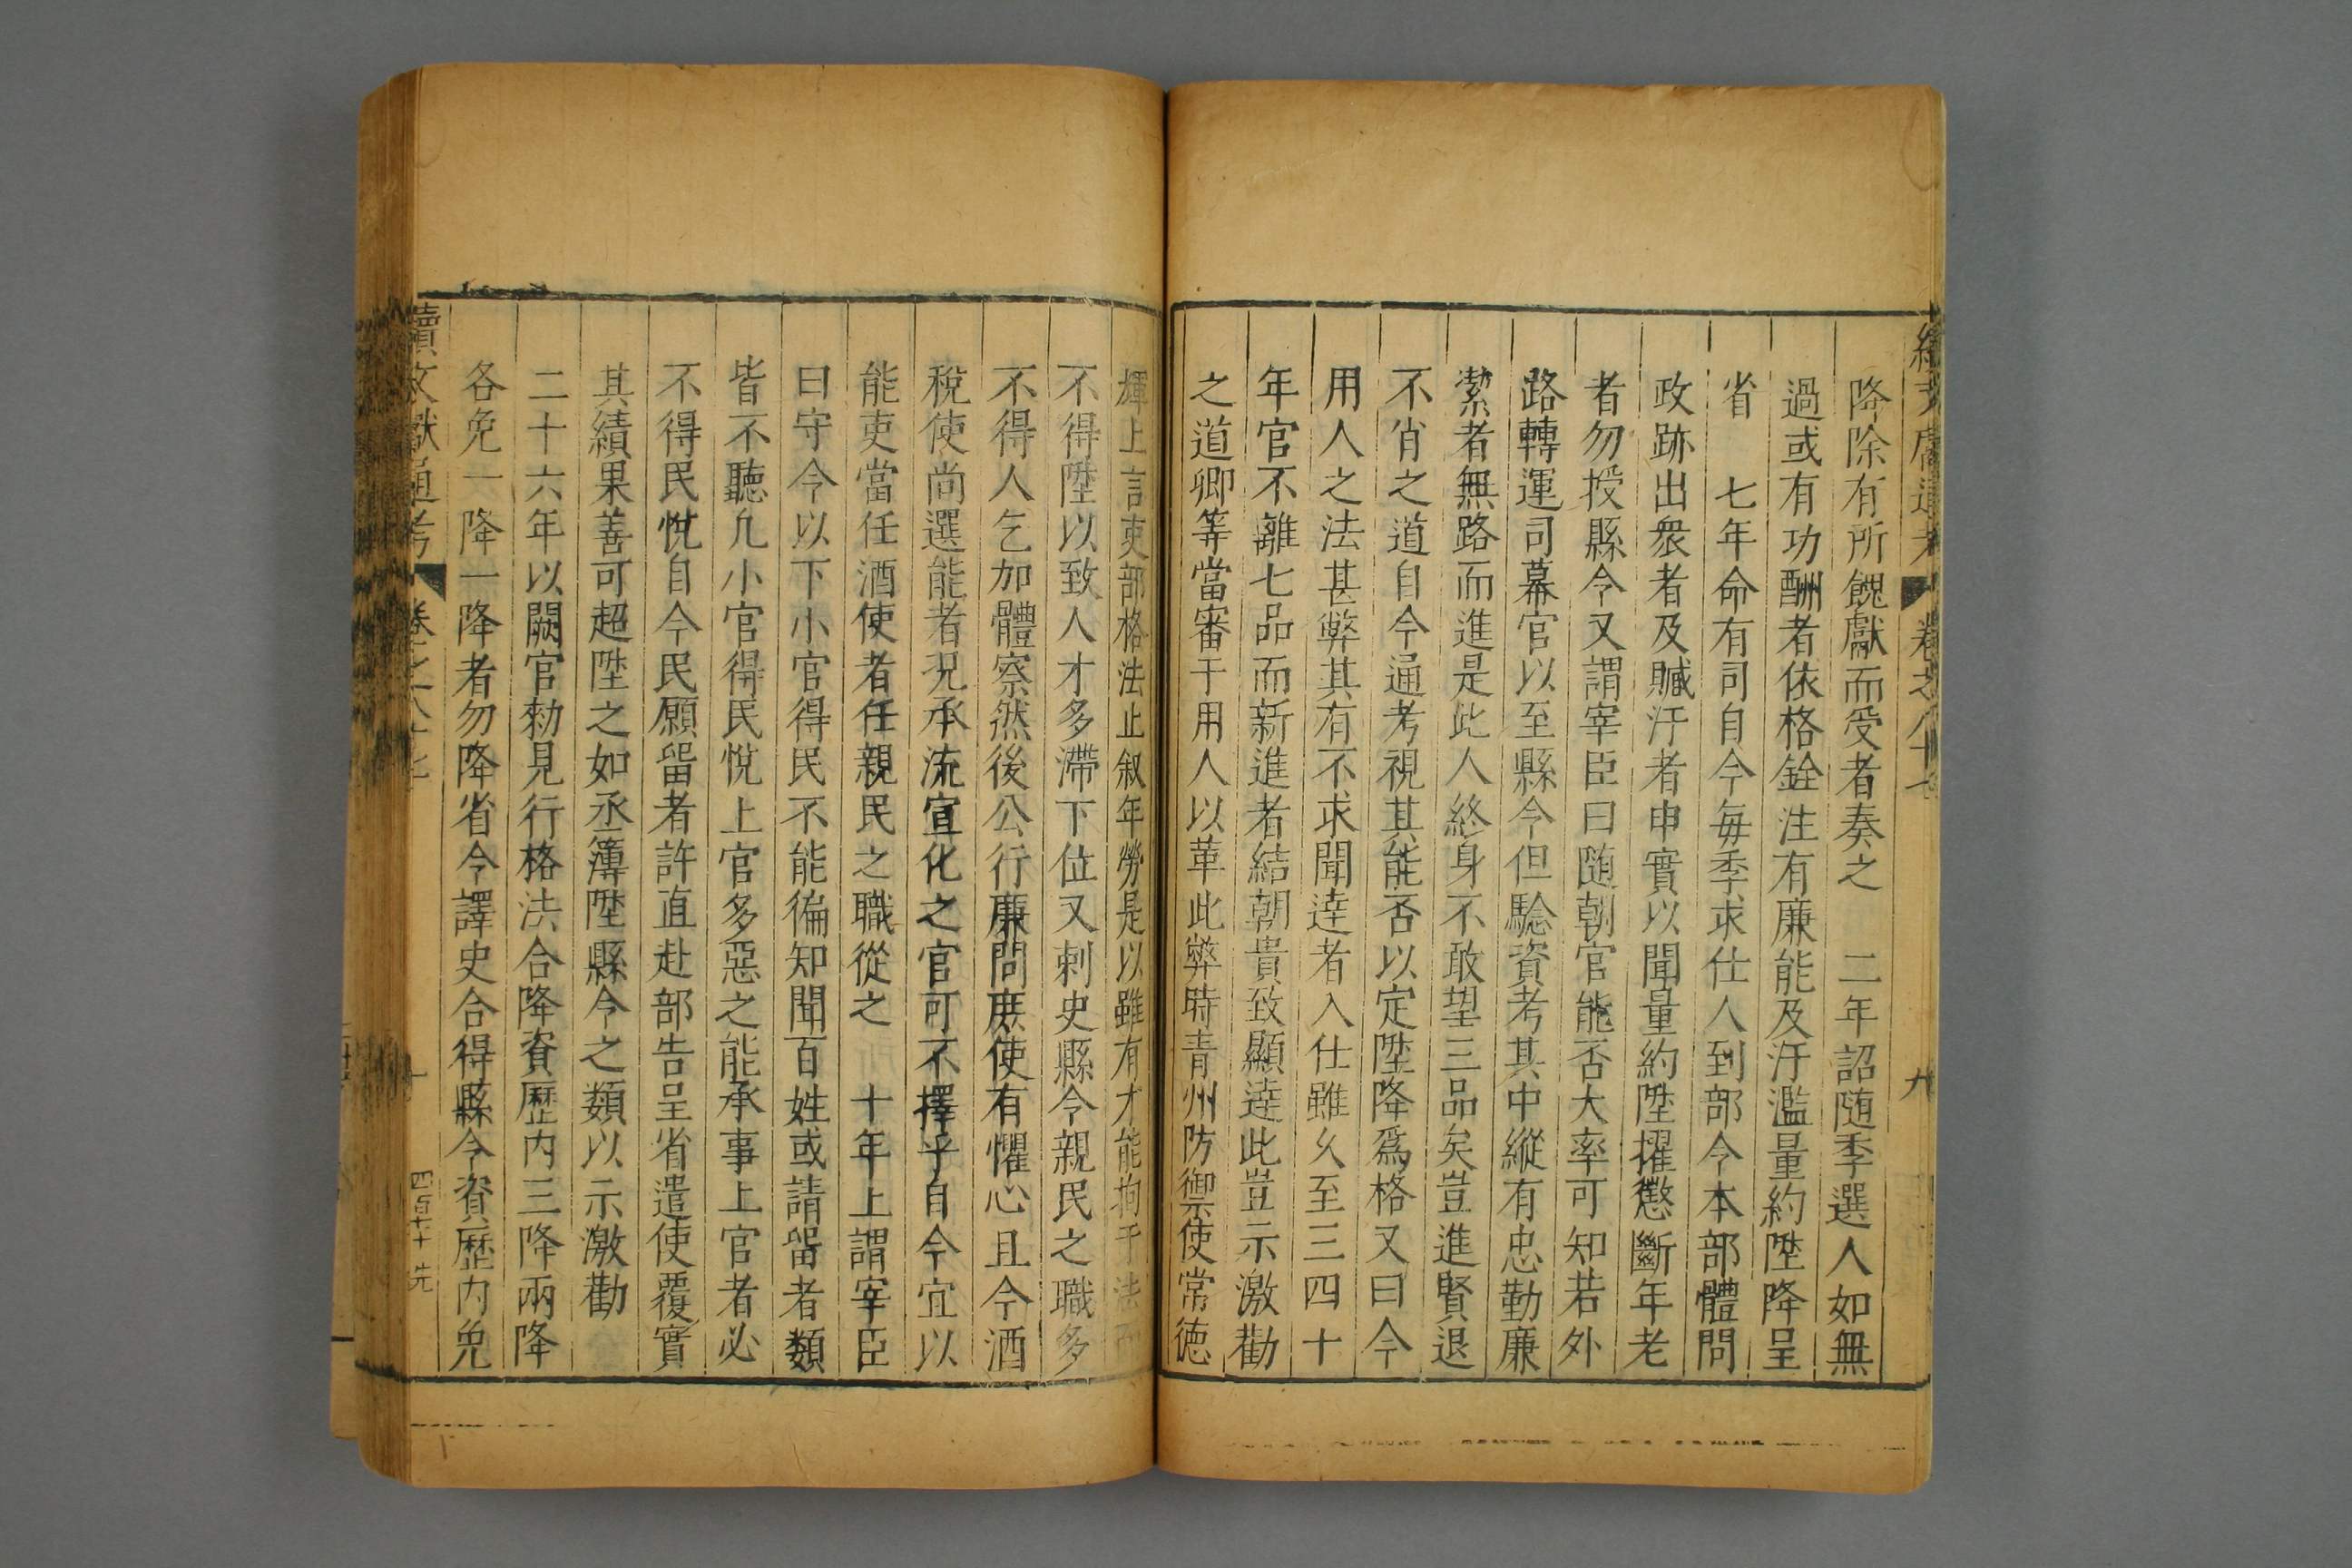 降除有所餽獻而受者奏之　二年詔随季選人如無
過或有功酬者依格銓注有廉能及汙濫量約陞降呈
省　七年命有司自今每季求仕人到部令本部體問
政跡出衆者及贓汙者申實以聞量約陞擢懲斷年老
者勿授縣令又謂宰臣曰随朝官能否大率可知若外
路轉運司幕官以至縣令但驗資考其中縱有忠勤廉
潔者無路而進是此人終身不敢望三品矣豈進賢退
不肖之道自今通考視其能否以定陞降爲格又曰今
用人之法甚弊其有不求聞逹者入仕雖久至三四十
年官不離七品而新進者結朝貴致顯逹此豈示激勸
之道卿等當審于用人以革此弊時青州防禦使常德
輝上言吏部格法止叙年勞是以雖有才能拘于法而
不得陞以致人才多滯下位又刺史縣令親民之職多
不得人乞加體察然後公行廉問庶使有懼心且今酒
稅使尚選能者況承流宣化之官可不擇乎自今宜以
能吏當任酒使者任親民之職從之　十年上謂宰臣
曰守令以下小官得民不能徧知聞百姓或請留者類
皆不聽凡小官得民悅上官多惡之能承事上官者必
不得民悅自今民願留者許直赴部告呈省遣使覆實
其績果善可超陞之如丞簿陞縣令之類以示激勸
二十六年以闕官勑見行格法合降資歷内三降兩降
各免一降一降者勿降省令譯史合得縣令資歷内免
續文獻通考　卷之八十七
四百十　先